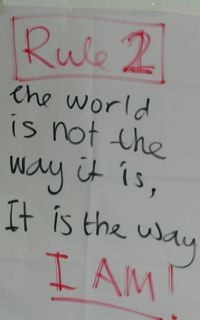 Rule 2
the world
is not the
way it is,
It is the way
I AM!